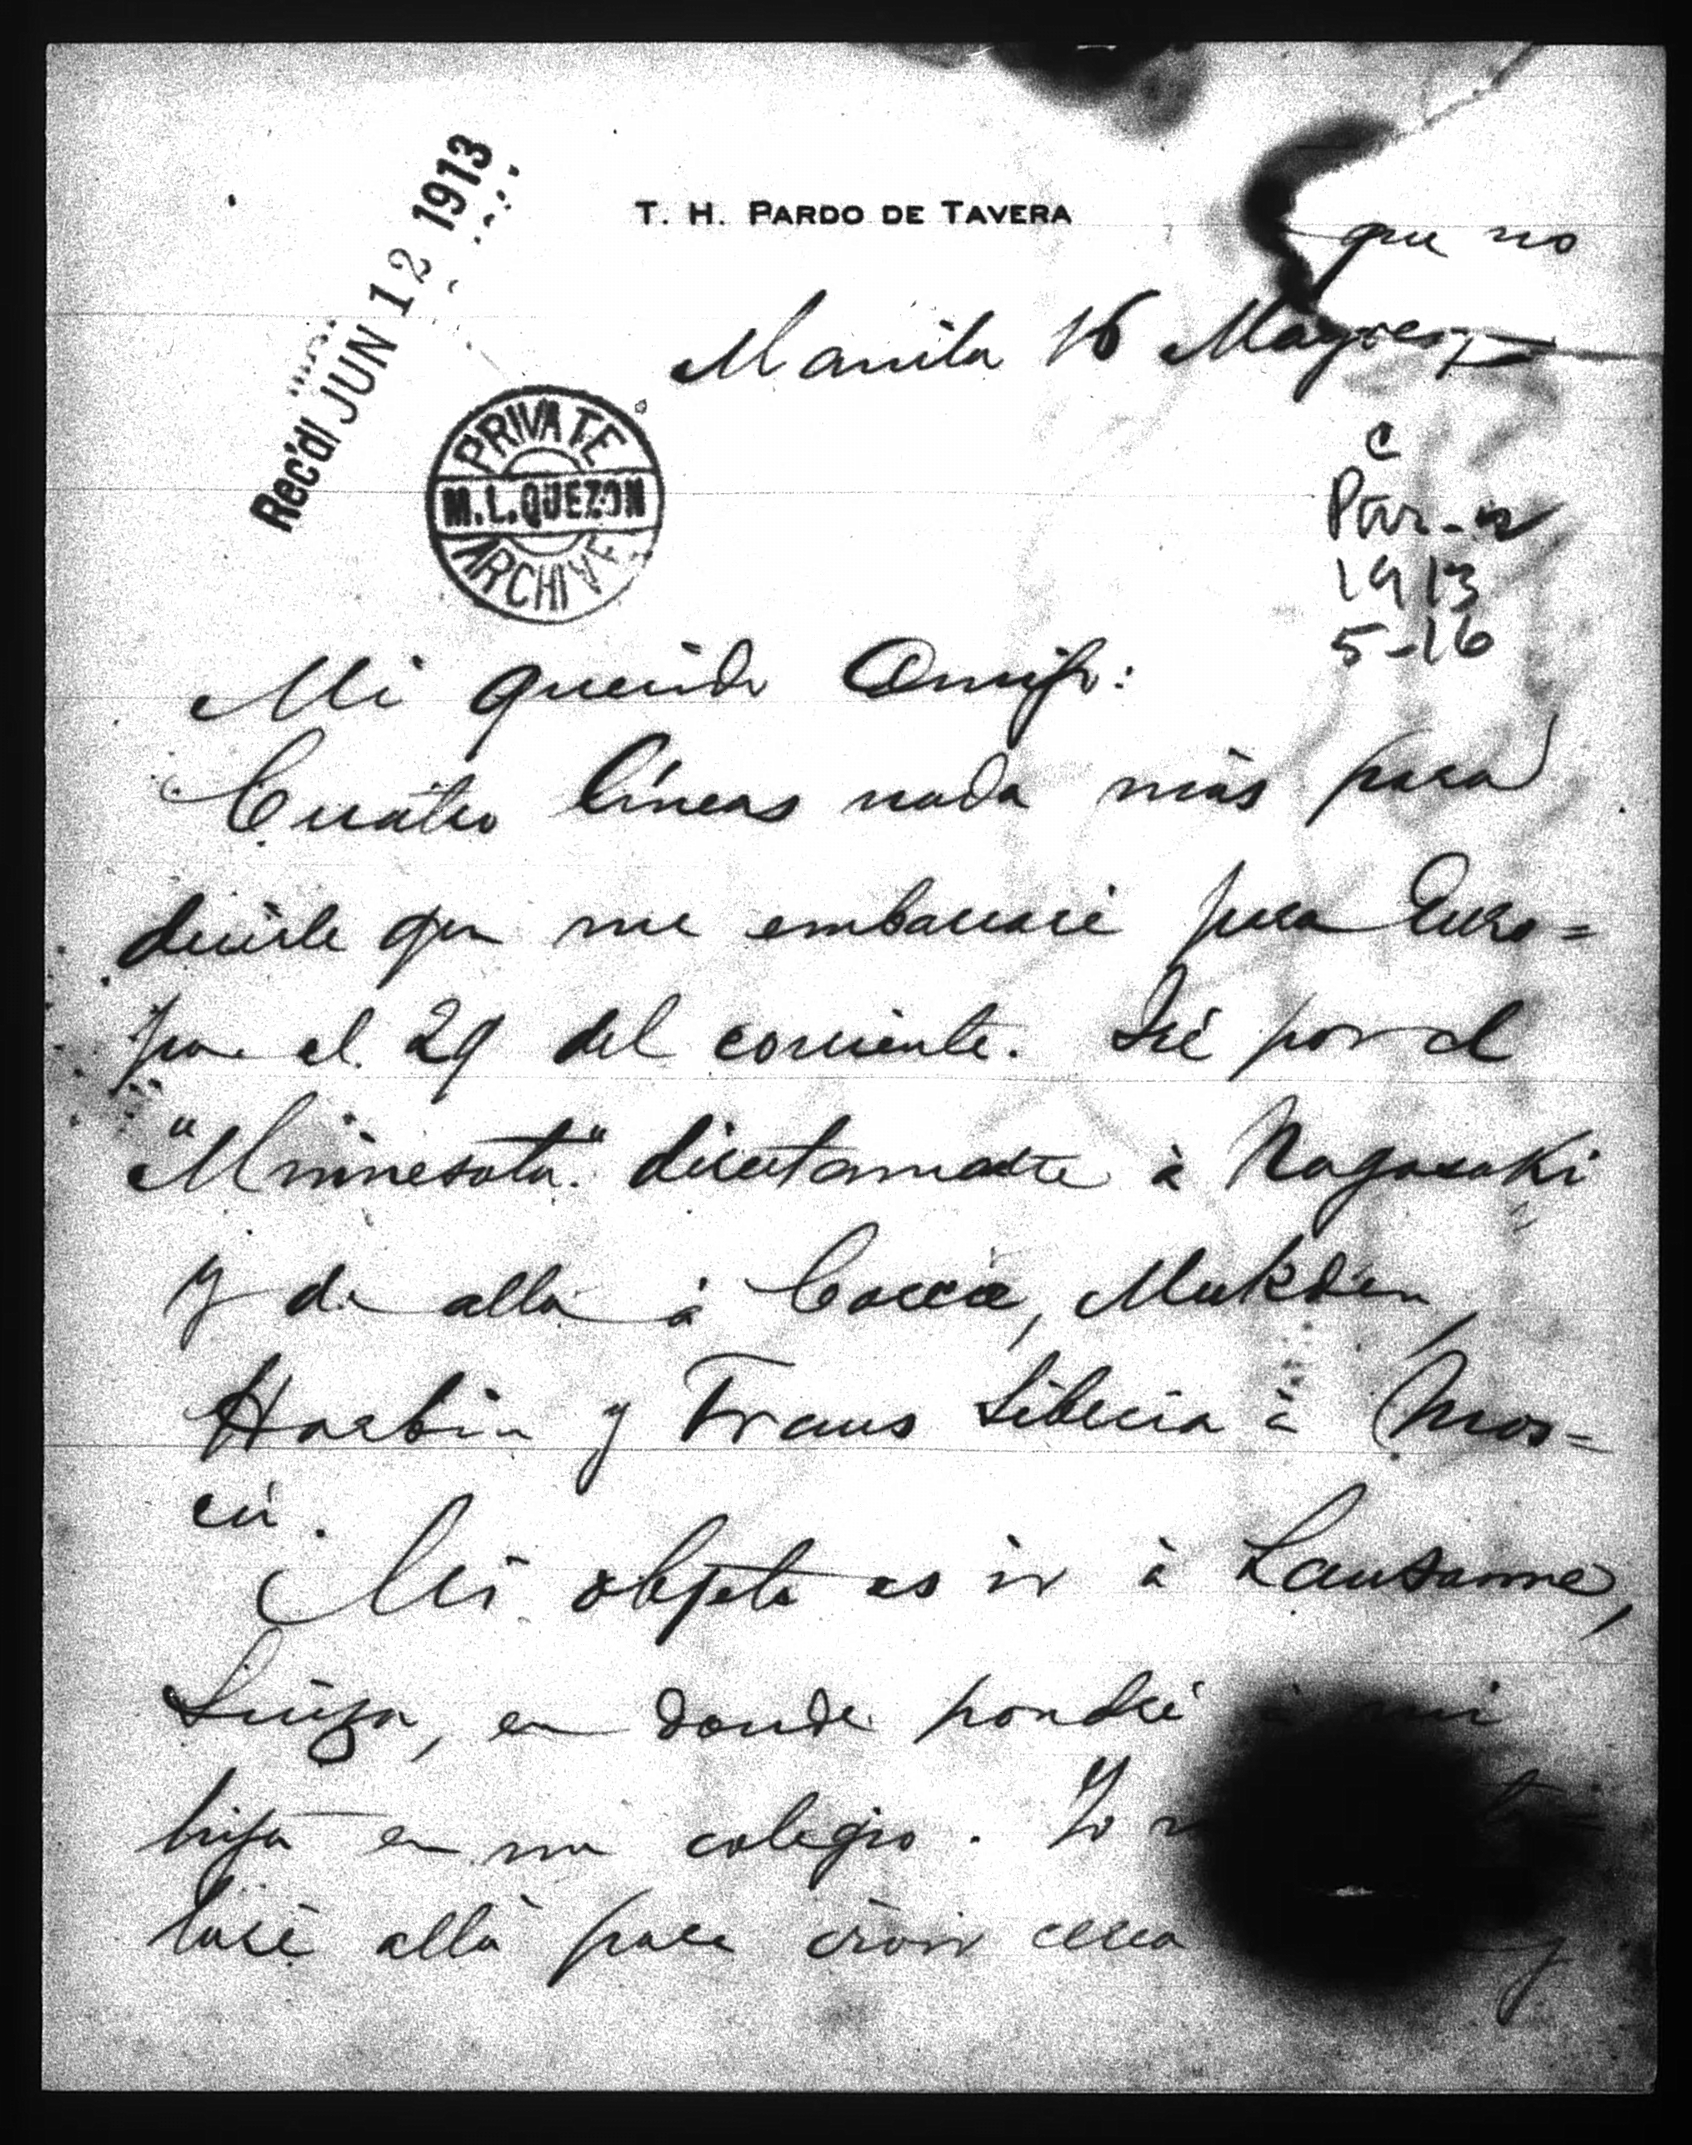 Rec'd JUN 12 1913
T. H. PARDO DE TAVERA
que no
Manila 16 Mayo
PRIVATE
M.L.QUEZON
ARCHIVE
C
1913
5-16
Mi querido Amigo:
Cuatro líneas nada más para
decirle que me embarcaré para Euro=
pa el 29 del corriente. Iré por el
"Minnesota" directamente á Nagasaki
y de allá á Corea, Mukden,
Harbin y Trans Siberia á Mos=
cú.
Mi objeto es ir á Lausanne,
Suiza, en donde pondré á mi
hija en un colegio. Yo
taré allá para vivir cerca
y